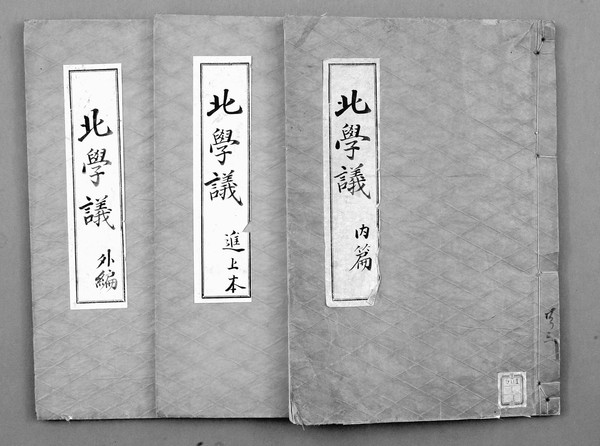 北學議 内篇
北學議 進上本
北學議 外編